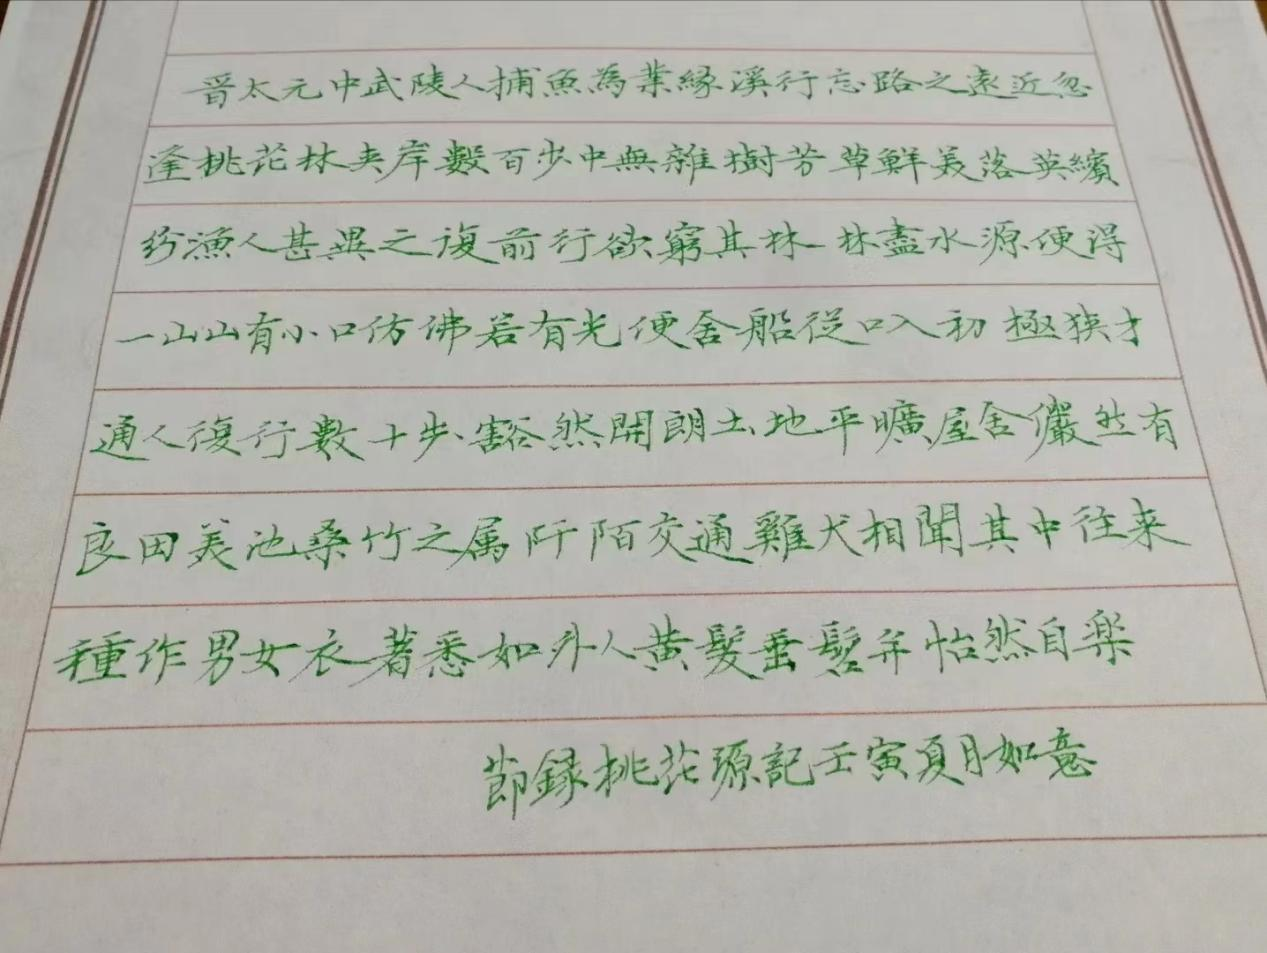 晉太元中武陵人捕魚為業緣溪行忘路之遠近忽
逢桃花林夹岸數百步中無雜樹芳草鮮美落英繽
紛漁人甚異之復前行欲窮其林林盡水源便得
一山山有小口仿佛若有光便舍船從口入初極狹才
通人復行數十步豁然開朗土地平曠屋舍儼然有
良田美池桑竹之属阡陌交通雞犬相聞其中往来
種作男女衣著悉如外人黄髮垂髫并怡然自樂
節録桃花源記壬寅夏月如意